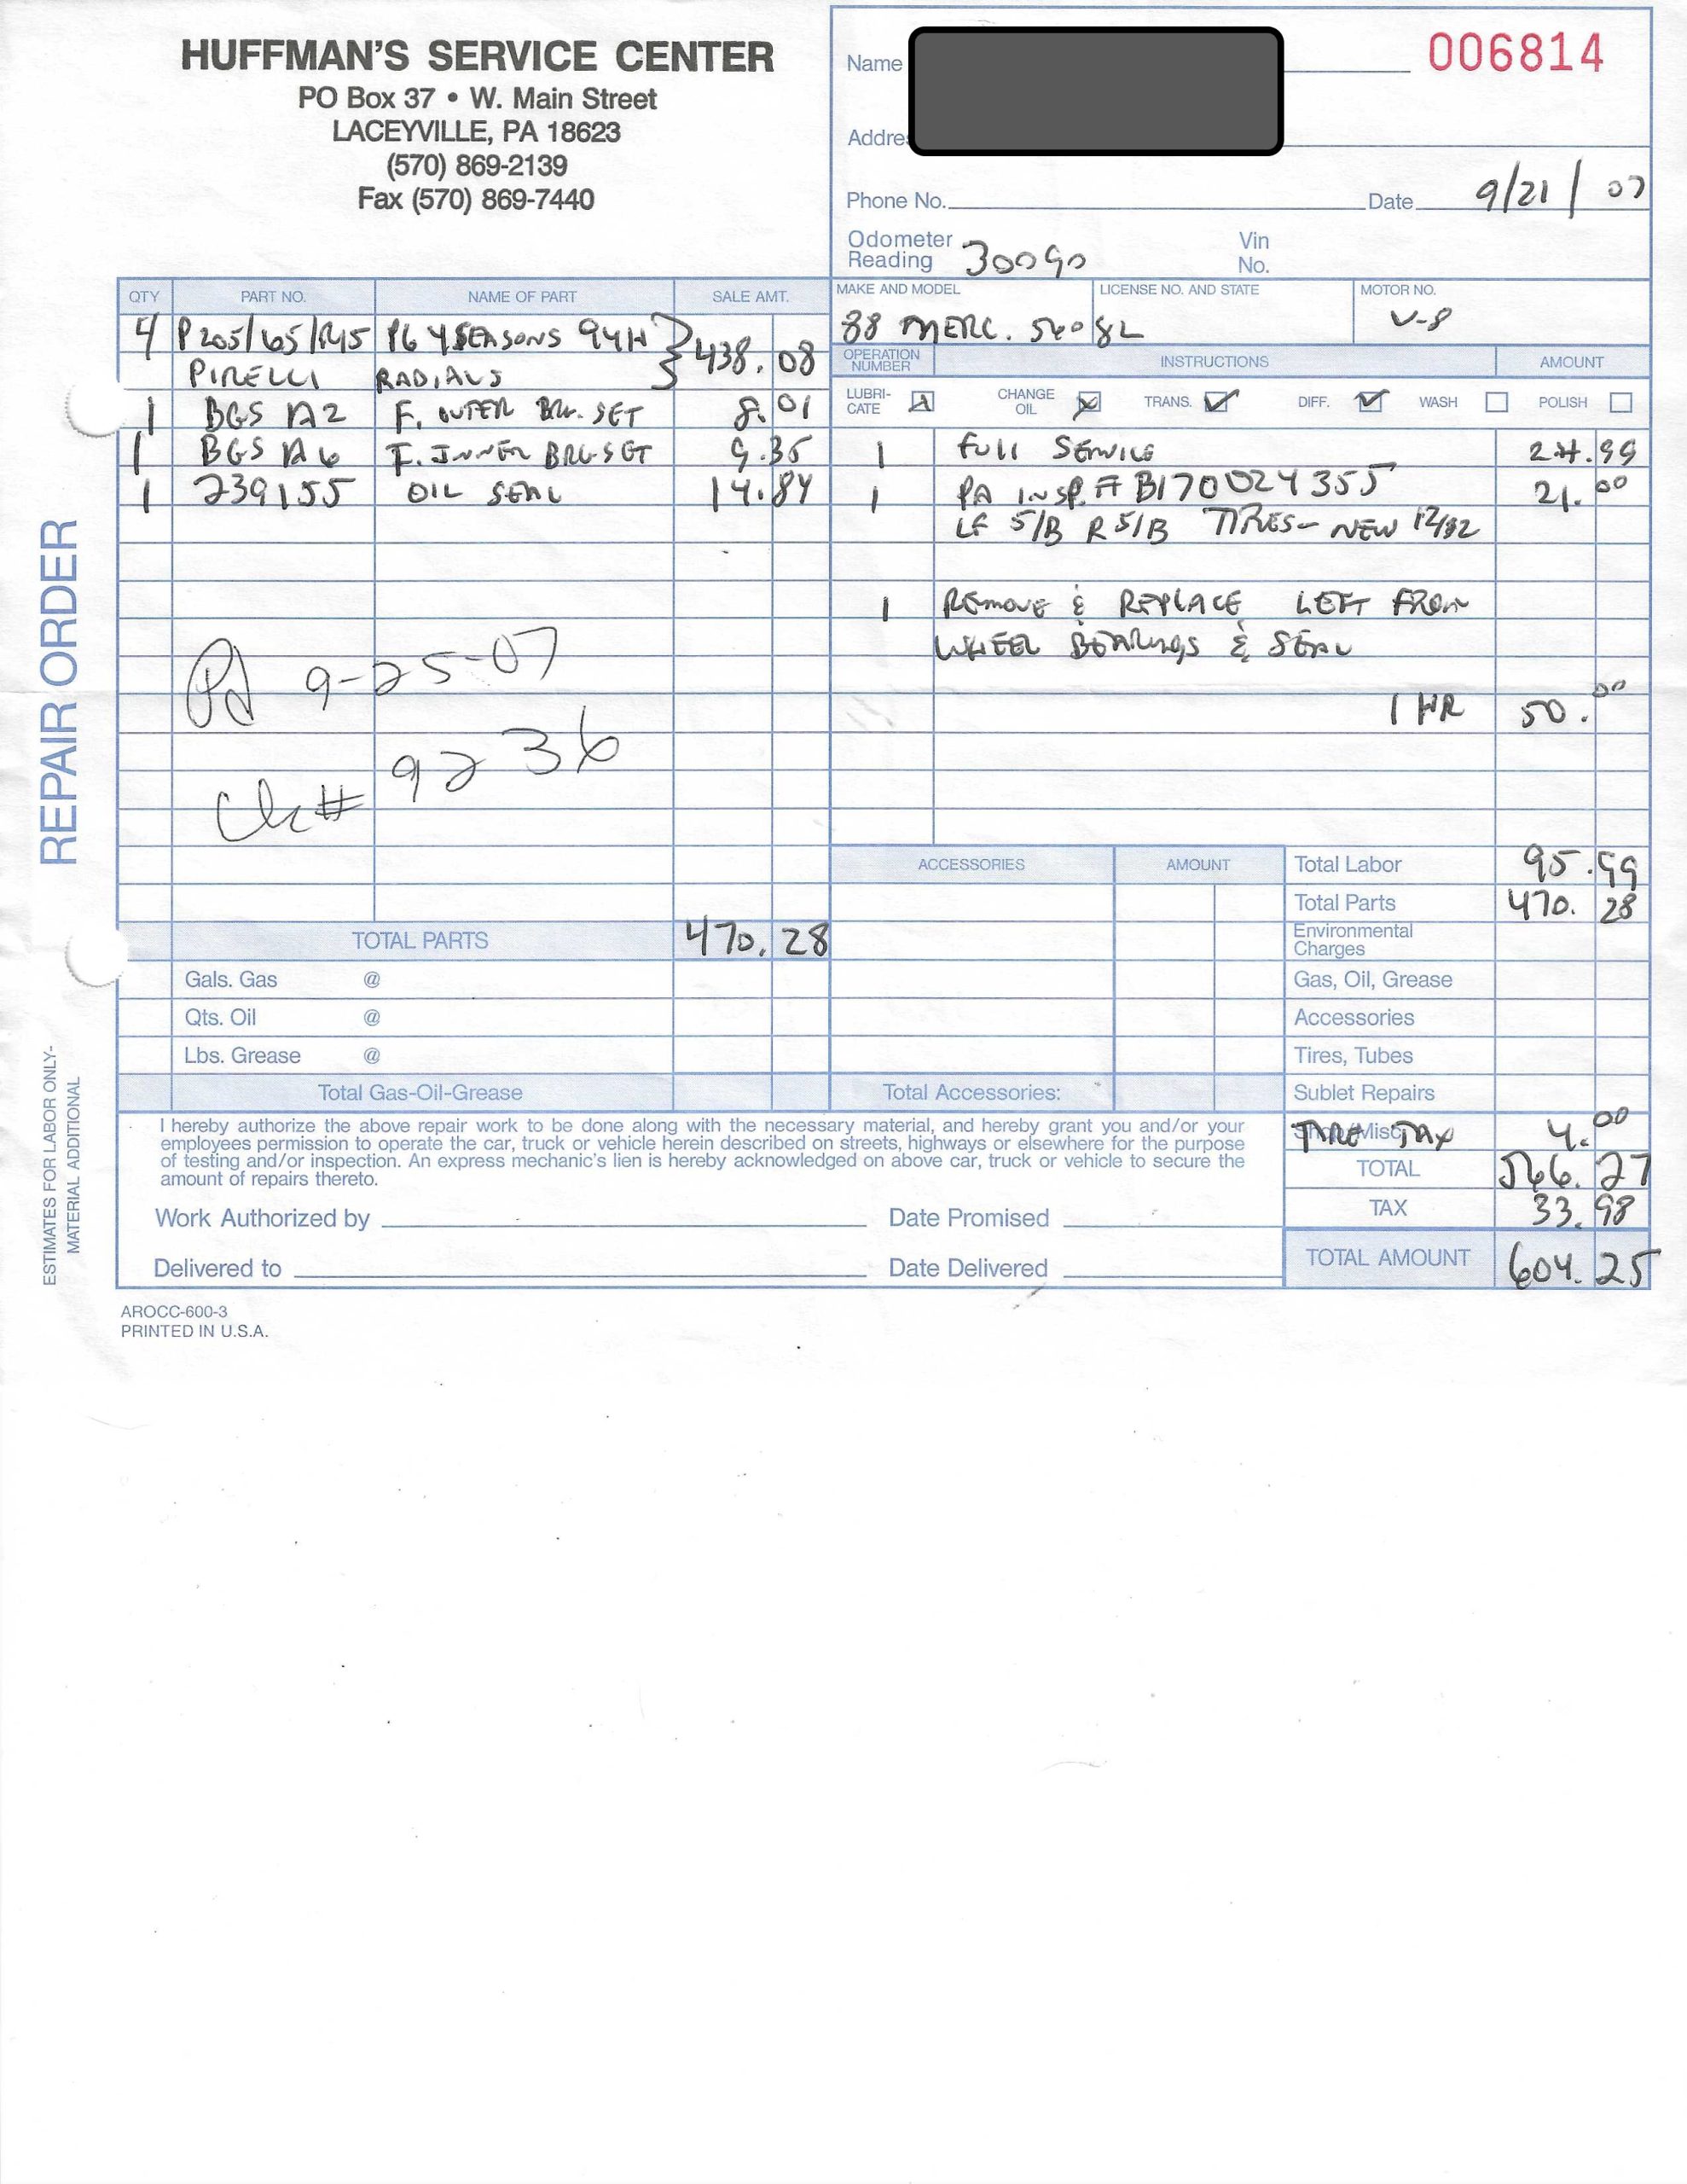 HUFFMAN'S SERVICE CENTER
PO Box 37 • W. Main Street
LACEYVILLE, PA 18623
(570) 869-2139
Fax (570) 869-7440
006814
Name
Addre
Phone No. Date 9/21/07
Odometer Reading 30090 Vin No.
MAKE AND MODEL LICENSE NO. AND STATE MOTOR NO.
88 MERC. 560 SL V-8
QTY PART NO. NAME OF PART SALE AMT.
4 P205/65/R15 P6 4 SEASONS 94H 438.08
PIRELLI RADIALS
1 BGS A2 F. OUTER BRG. SET 8.01
1 BGS A6 F. INNER BRG SET 9.35
1 239155 OIL SEAL 14.84
Pd 9-25-07
Ck# 9236
TOTAL PARTS 470.28
Gals. Gas @
Qts. Oil @
Lbs. Grease @
Total Gas-Oil-Grease
OPERATION NUMBER INSTRUCTIONS AMOUNT
LUBRI-CATE CHANGE OIL TRANS. DIFF. WASH POLISH
1 FULL SERVICE 24.99
1 PA INSP. # B170024355 21.00
LF 5/B R 5/B TIRES- NEW 12/32
1 REMOVE & REPLACE LEFT FRONT
WHEEL BEARINGS & SEAL
1 HR 50.00
ACCESSORIES AMOUNT
Total Accessories:
Total Labor 95.99
Total Parts 470.28
Environmental Charges
Gas, Oil, Grease
Accessories
Tires, Tubes
Sublet Repairs
TIRE TAX 4.00
TOTAL 566.27
TAX 33.98
TOTAL AMOUNT 604.25
I hereby authorize the above repair work to be done along with the necessary material, and hereby grant you and/or your
employees permission to operate the car, truck or vehicle herein described on streets, highways or elsewhere for the purpose
of testing and/or inspection. An express mechanic's lien is hereby acknowledged on above car, truck or vehicle to secure the
amount of repairs thereto.
Work Authorized by Date Promised
Delivered to Date Delivered
REPAIR ORDER
ESTIMATES FOR LABOR ONLY-
MATERIAL ADDITIONAL
AROCC-600-3
PRINTED IN U.S.A.